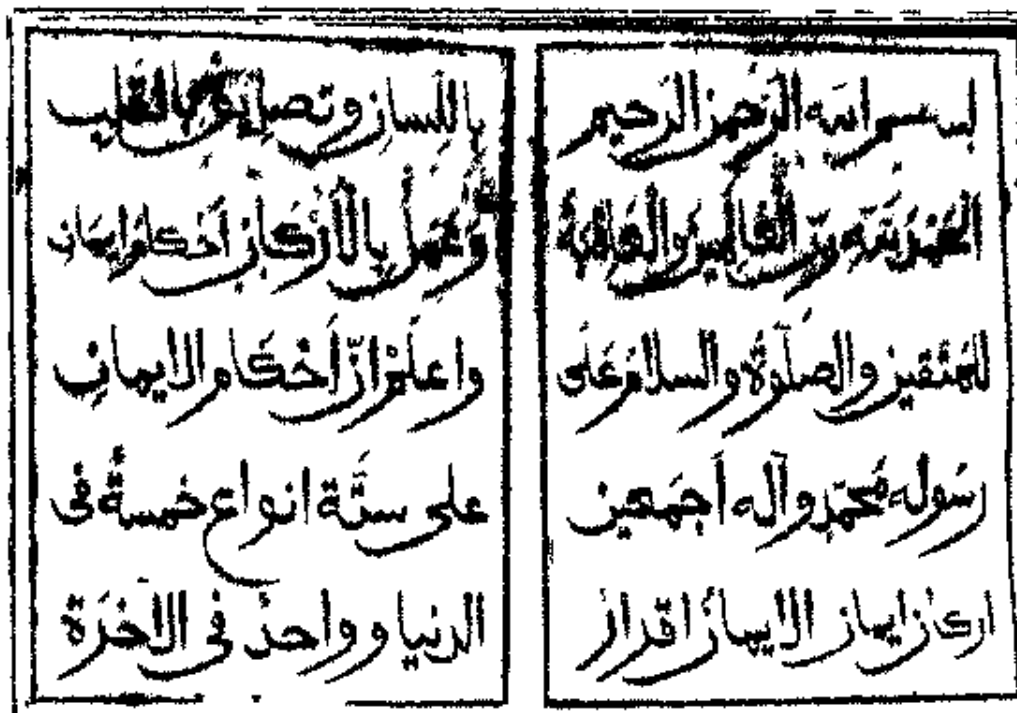 بسم الله الرحمن الرحيم
الحمد لله ربّ العالمين والعاقبة
للمتقين والصلوة والسلام على
رسوله محمّد وآله أجمعين
اركان ايمان الايمان اقرار
باللسان وتصديق بالقلب
وعمل بالأركان أحكام ايمان
واعلم انّ أحكام الايمان
على ستّة انواع خمسة فى
الدنيا وواحد فى الآخرة